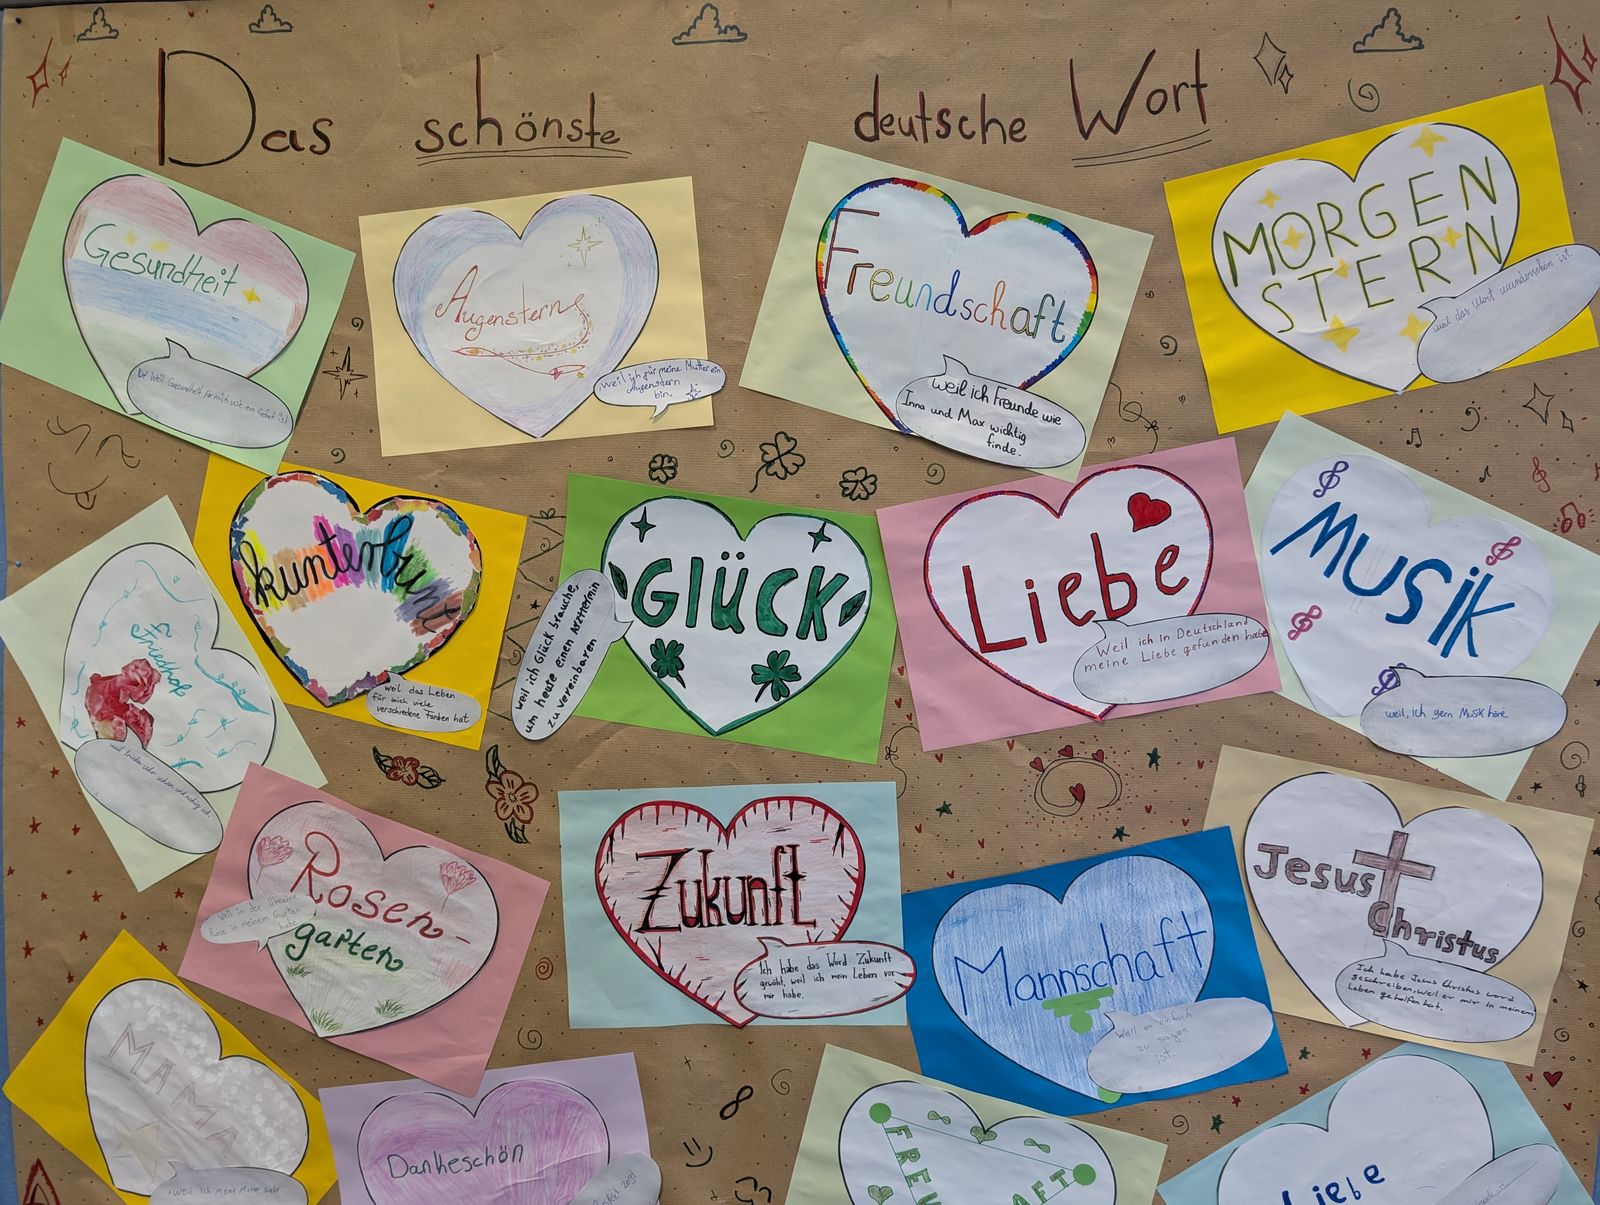 Das schönste deutsche Wort
Gesundheit
weil Gesundheit für mich wie ein Gebet ist
Augenstern
Weil ich für meine Mutter ein
Augenstern
bin.
Freundschaft
weil ich Freunde wie
Inna und Max wichtig
finde.
MORGEN
STERN
weil das Wort wunderschön ist.
Friedhof
und ruhig ist.
kunterbunt
weil das Leben
für mich viele
verschiedene Farben hat
GLÜCK
weil ich Glück brauche,
um heute einen Arzttermin
zu vereinbaren
Liebe
Weil ich in Deutschland
meine Liebe gefunden habe
MUSIK
weil, ich gern Musik höre.
Rosen-
garten
Weil in der Ukraine
Rose in meinem Garten
habe
Zukunft
Ich habe das Word Zukunft
gewöhlt, weil ich mein Leben vor
mir habe.
Mannschaft
Weil es einfach
zu sagen
ist.
Jesus
Christus
Ich habe Jesus Christus word
geschreiben, weil er mir in meinem
Leben geholfen hat.
MAMA
weil ich meine Mama liebe
Dankeschön
Liebe